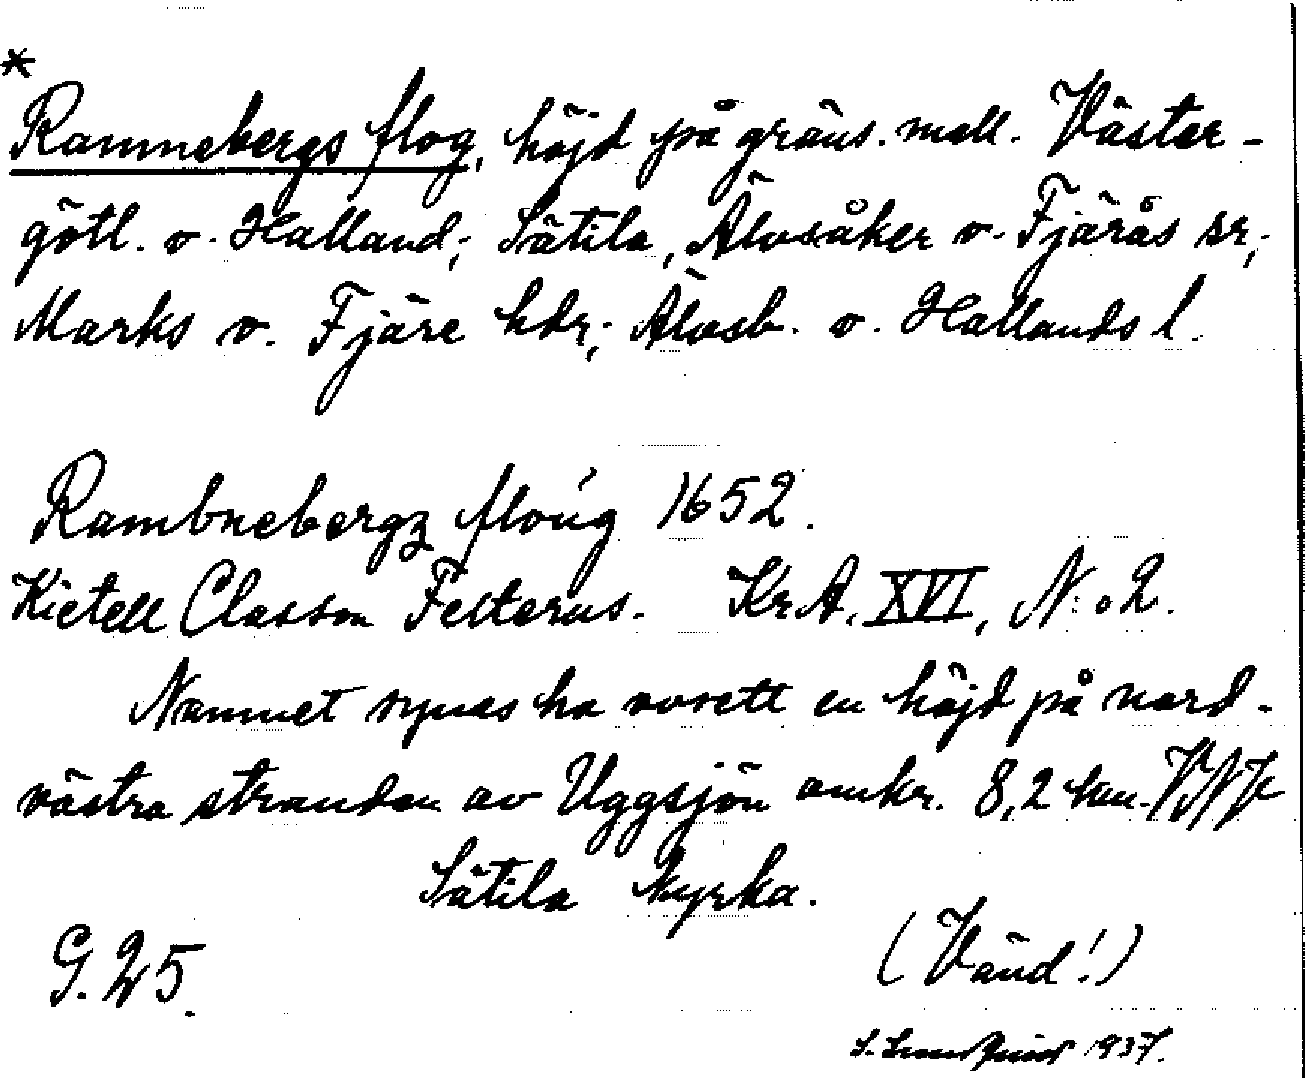 *
Ramnebergs flog, höjd på gräns. mell. Väster-
götl. o. Halland; Sätila, Älvsåker o. Fjärås sr,;
Marks o. Fjäre hdr,; Älvsb. o. Hallands l.
Rambnebergz floúg 1652.
Kietell Classon Felterus. Kr.A. XVI, N:o 2.
Namnet synes ha avsett en höjd på nord-
västra stranden av Uggsjön omkr. 8,2 km. VNV
Sätila kyrka.
G. 25.
(Vänd!)
1937.